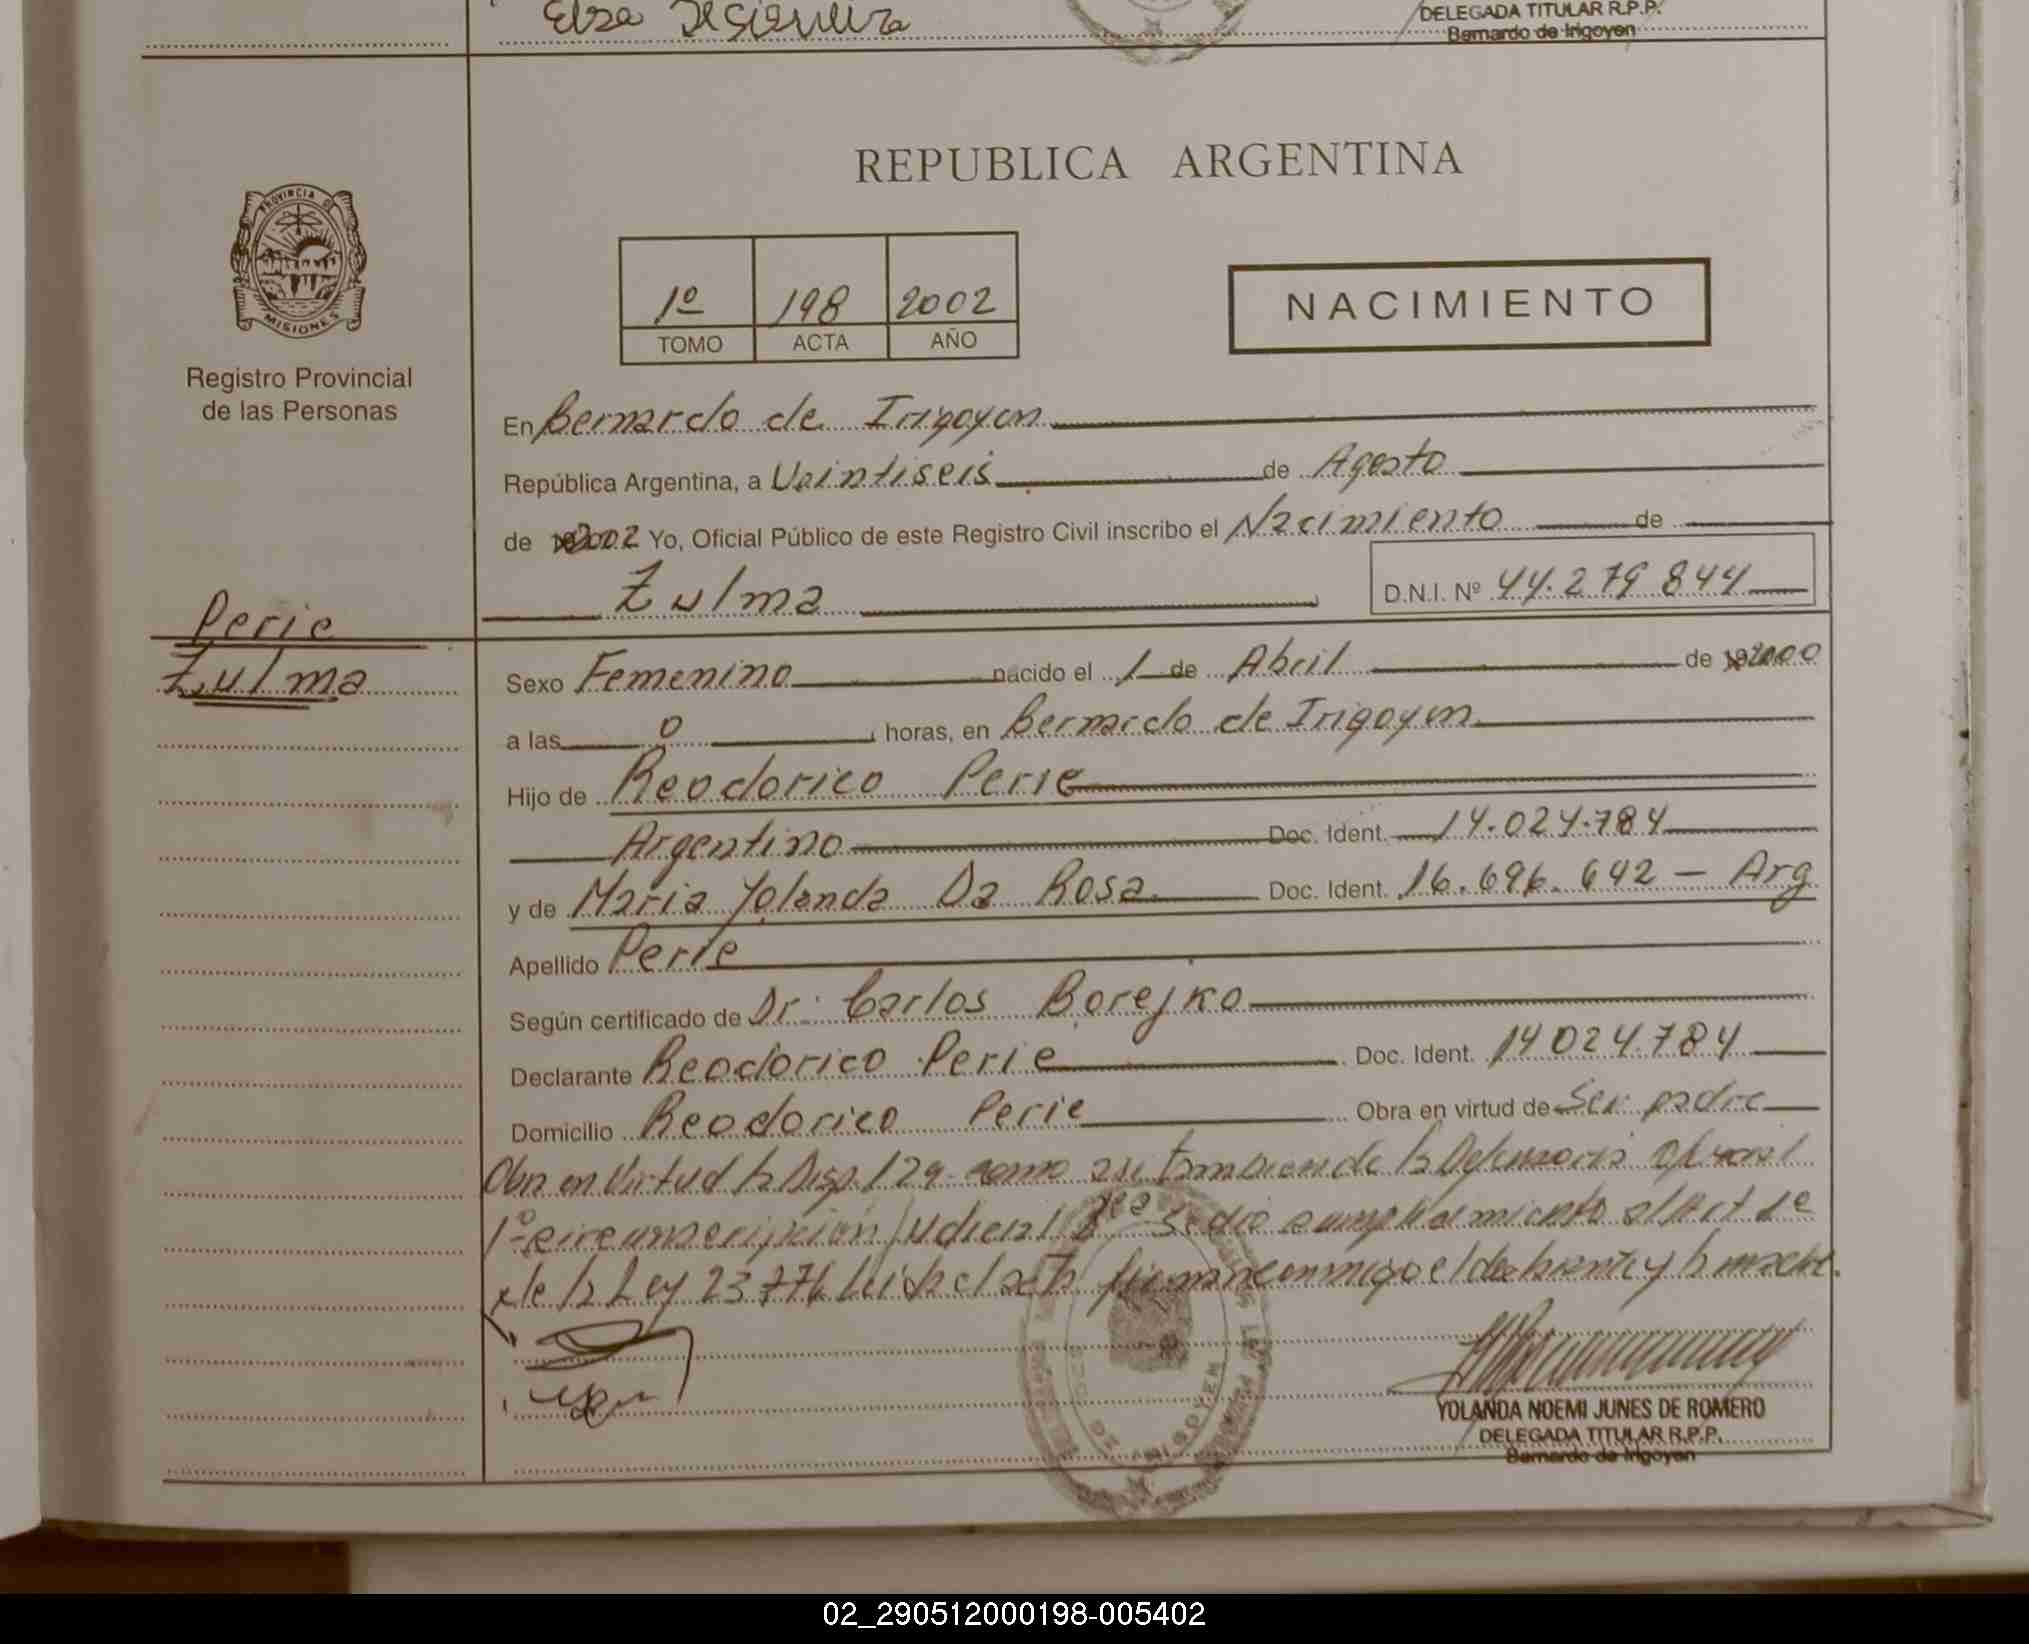 Elsa
DELEGADA TITULAR R.P.P.
Bernardo de Irigoyen
PROVINCIA DE
MISIONES
Registro Provincial
de las Personas
REPUBLICA ARGENTINA
1º 198 2002
TOMO ACTA AÑO
NACIMIENTO
En Bernardo de Irigoyen
República Argentina, a Veintiseis de Agosto
de 2002 Yo, Oficial Público de este Registro Civil inscribo el Nacimiento de
Zulma D.N.I. Nº 44.279.844
Perie
Zulma
Sexo Femenino nacido el 1 de Abril de 2000
a las 0 horas, en Bernardo de Irigoyen
Hijo de Reodorico Perie
Argentino Doc. Ident. 14.024.784
y de Maria Yolanda Da Rosa Doc. Ident. 16.696.642 - Arg
Apellido Perie
Según certificado de Dr. Carlos Borejko
Declarante Reodorico Perie Doc. Ident. 14024.784
Domicilio Reodorico Perie Obra en virtud de Ser padre
Obra en Virtud la Disp. 129 como asi tambien de la Defensoria Oficial
1º circunscripcion Judicial se dio cumplimiento al Art 1º
de la Ley 23.776 Leida el acta firman conmigo el declarante y la madre.
YOLANDA NOEMI JUNES DE ROMERO
DELEGADA TITULAR R.P.P.
Bernardo de Irigoyen
02_290512000198-005402